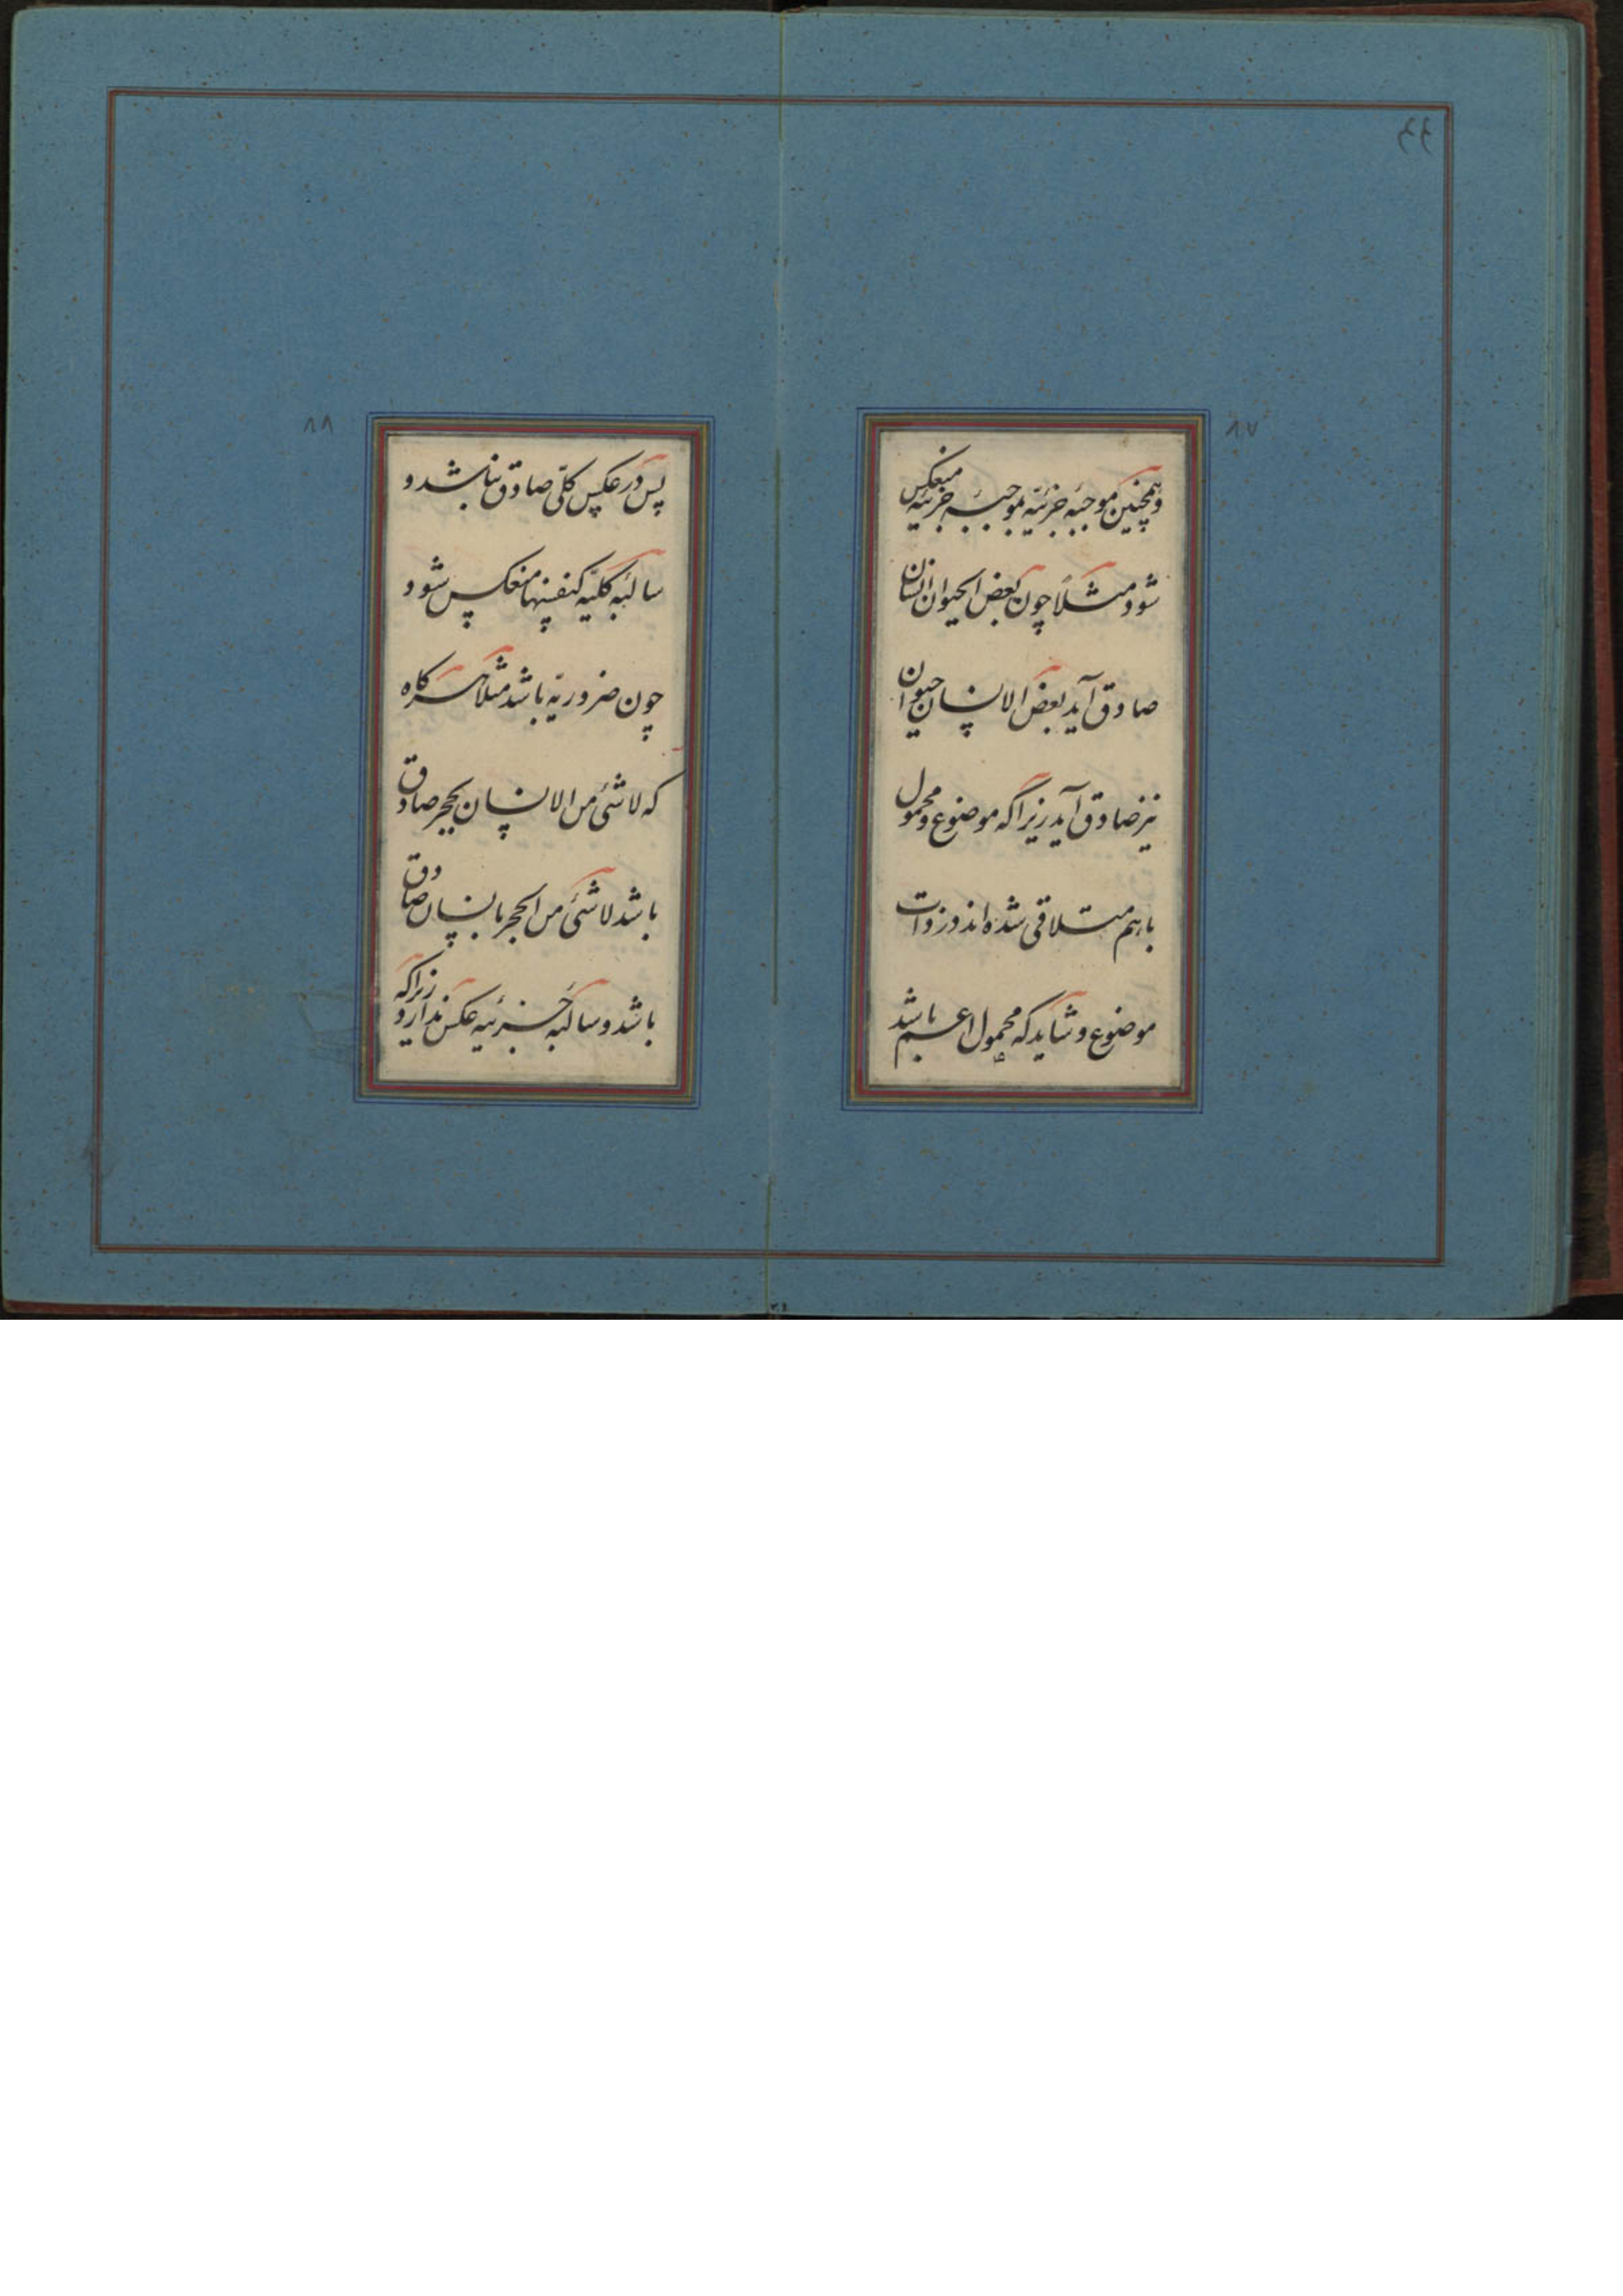 ۴۴
۸۷
وهمچنین موجبه جزئیه بموجبه جزئیه منعکس
شود مثلاً چون بعض الحیوان انسان
صادق آید بعض الانسان حیوان
نیز صادق آید زیرا که موضوع و محمول
با هم متلاقی شده اند در ذات
موضوع و شاید که محمول اعم باشد
۸۸
پس در عکس کلی صادق نباشد و
سالبه کلیه کنفسها منعکس شود و
چون ضروریه باشد مثلاً هر گاه
که لا شئ من الانسان بحجر صادق
باشد لا شئ من الحجر بانسان صادق
باشد و سالبه جزئیه عکس ندارد زیرا که